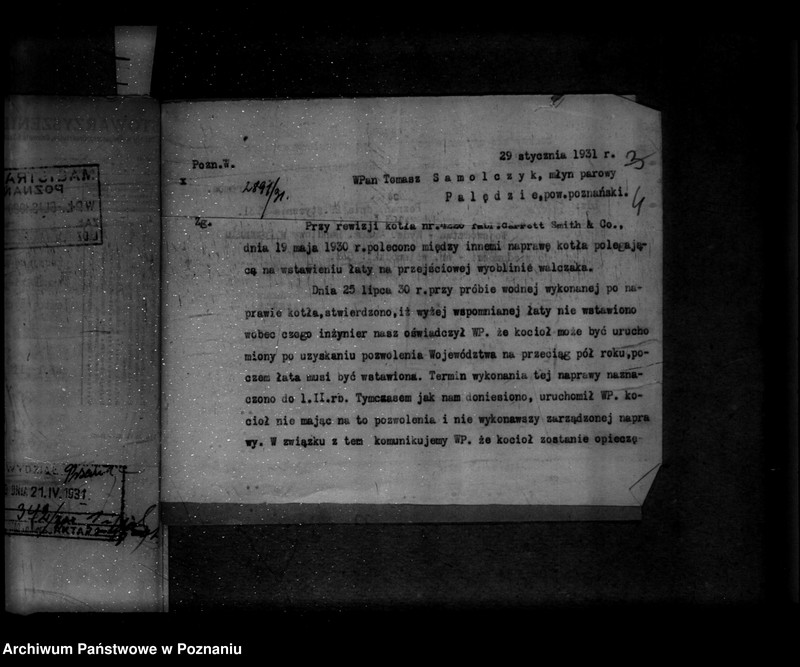 29 stycznia 1931 r.
Pozn.W.
x
2897/31.
WPan Tomasz Samolczyk, młyn parowy
Palędzie, pow.poznański.
Zg.
Przy rewizji kotła nr. fabr.Garrett Smith & Co.,
dnia 19 maja 1930 r.polecono między innemi naprawę kotła polegają-
cą na wstawieniu łaty na przejściowej wyoblinie walczaka.
Dnia 25 lipca 30 r.przy próbie wodnej wykonanej po na-
prawie kotła,stwierdzono,iż wyżej wspomnianej łaty nie wstawiono
wobec czego inżynier nasz oświadczył WP. że kocioł może być urucho
miony po uzyskaniu pozwolenia Województwa na przeciąg pół roku,po-
czem łata musi być wstawiona. Termin wykonania tej naprawy nazna-
czono do 1.II.rb. Tymczasem jak nam doniesiono, uruchomił WP. ko-
cioł nie mając na to pozwolenia i nie wykonawszy zarządzonej napra
wy. W związku z tem komunikujemy WP. że kocioł zostanie opieczę-
DNIA 21.IV.1931
Archiwum Państwowe w Poznaniu